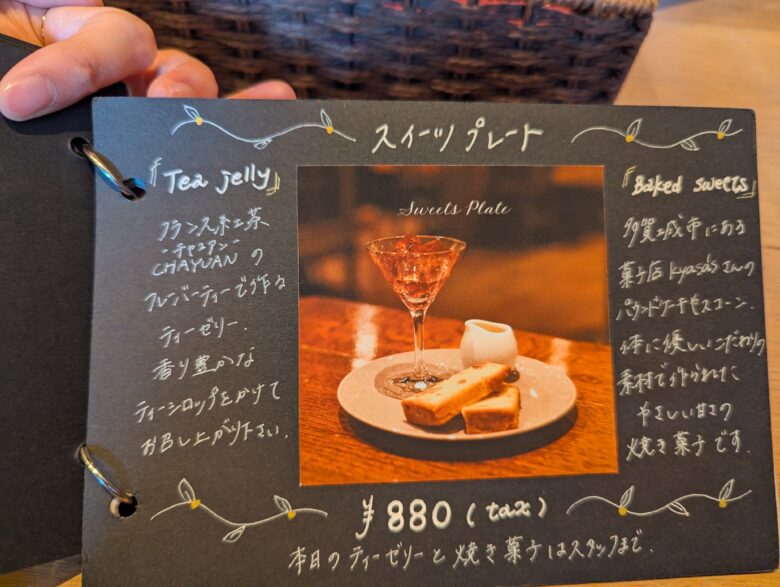 スイーツプレート
『Tea jelly』
フランス紅茶
-チャユアン-
CHAYUANの
フレーバーティーで作る
ティーゼリー.
香り豊かな
ティーシロップをかけて
お召し上がり下さい.
Sweets Plate
『Baked sweets』
多賀城市にある
菓子店kyasdsさんの
パウンドケーキやスコーン.
体に優しいこだわりの
素材で作られた
やさしい甘さの
焼き菓子です.
¥880(tax)
本日のティーゼリーと焼き菓子はスタッフまで.